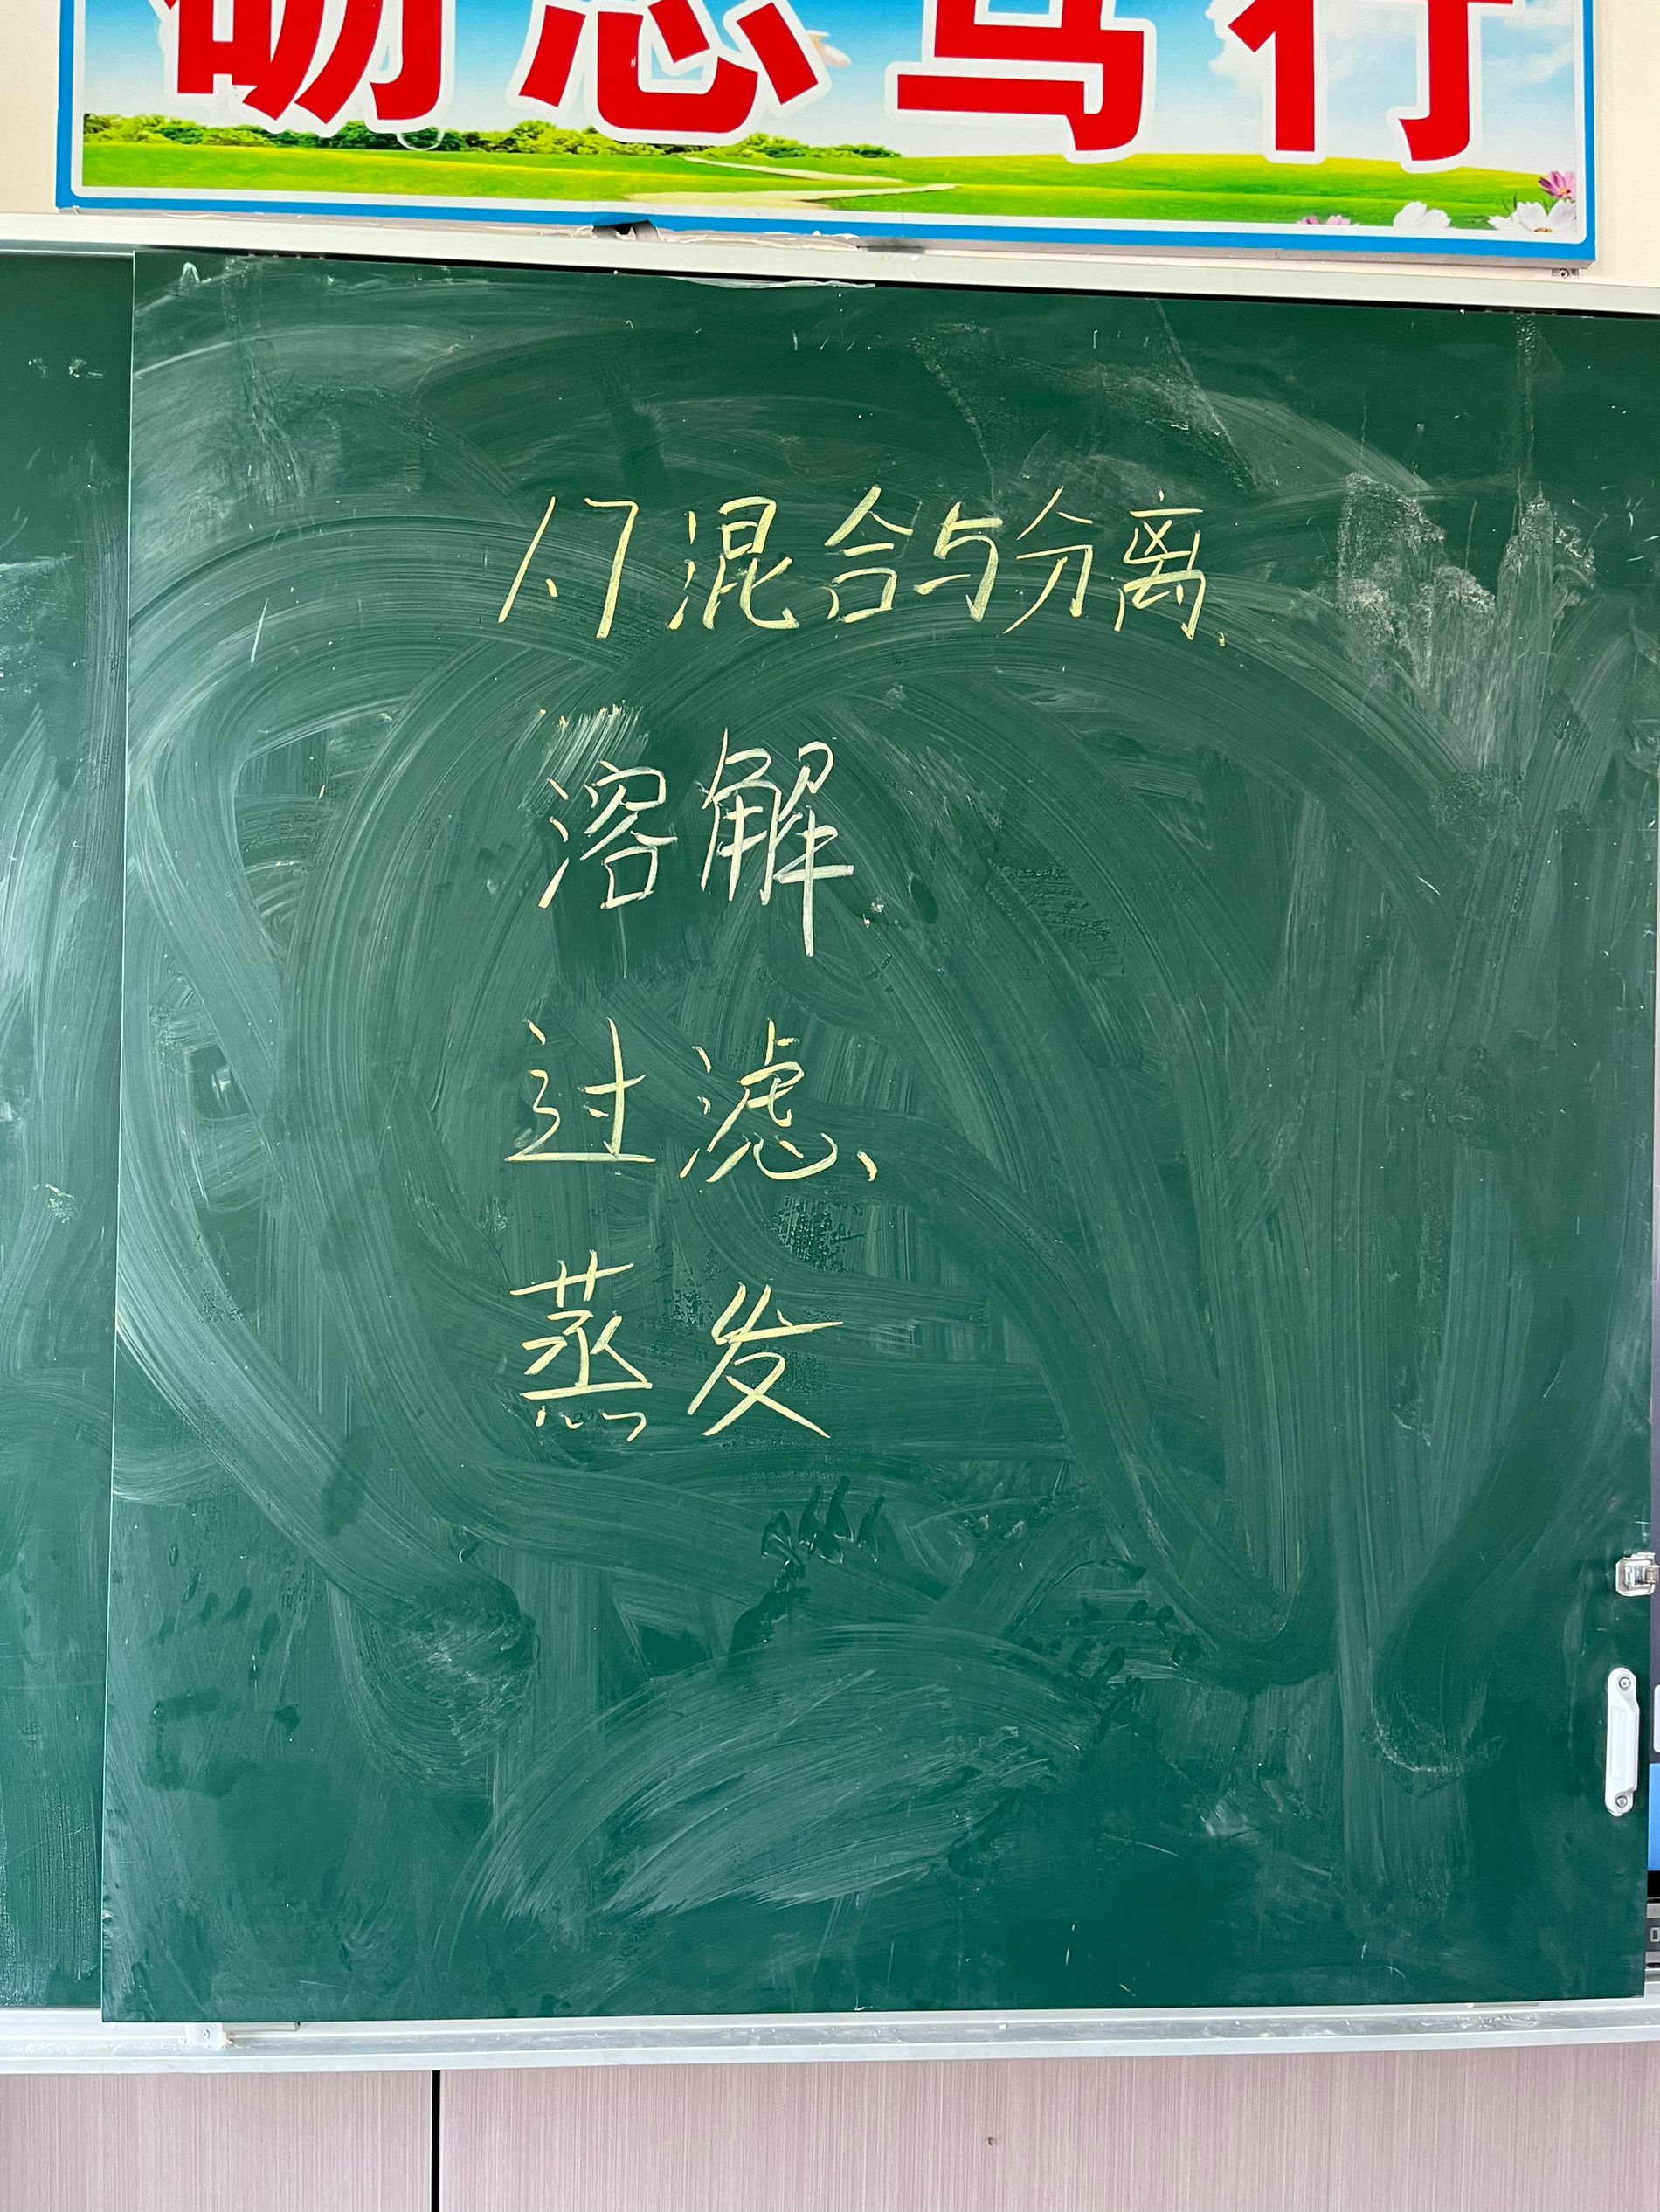 砺志笃行
1.7混合与分离
溶解
过滤
蒸发